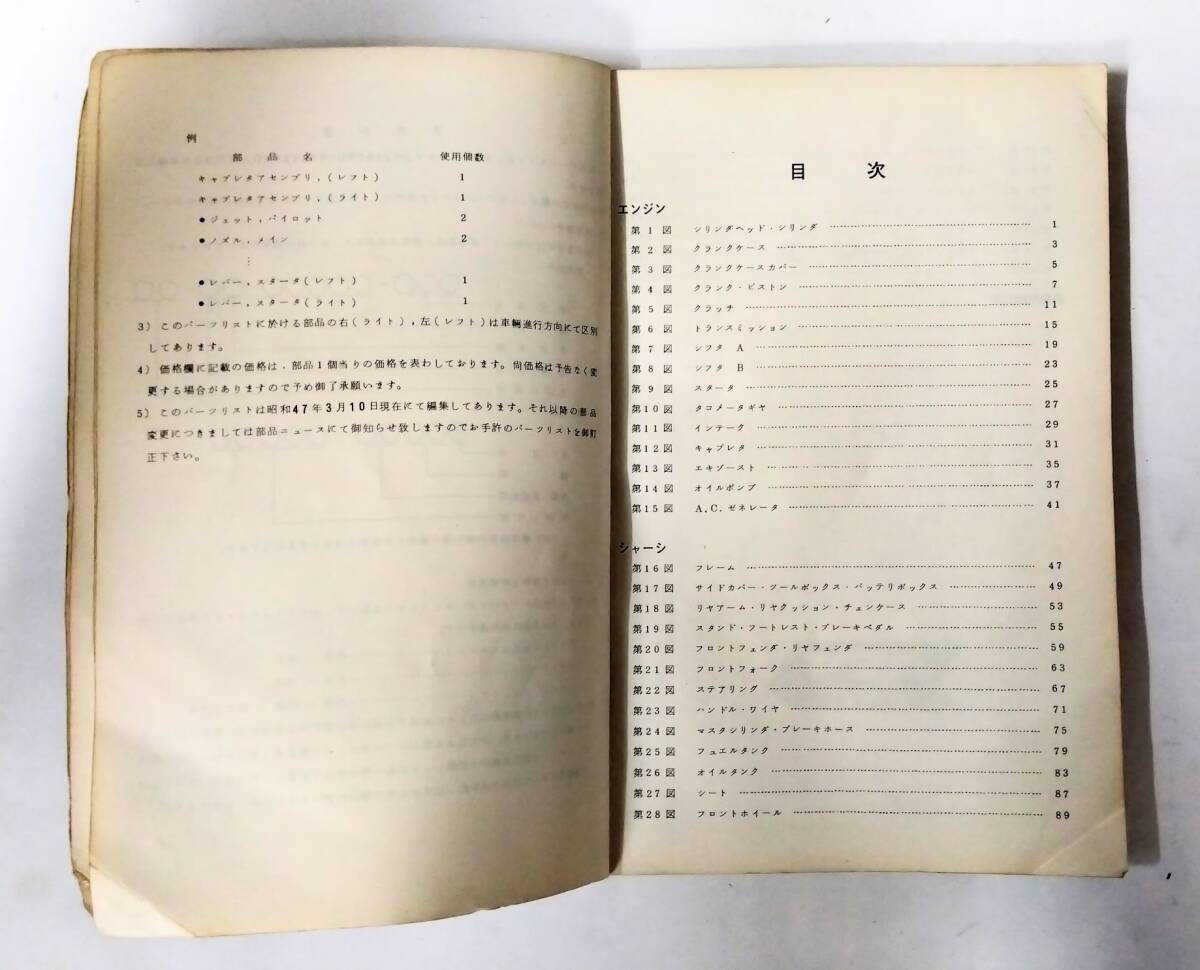 例
部品名 使用個数
キャブレタアセンブリ,(レフト) 1
キャブレタアセンブリ,(ライト) 1
●ジェット,パイロット 2
●ノズル,メイン 2
⋮
●レバー,スタータ(レフト) 1
●レバー,スタータ(ライト) 1
3) このパーツリストに於ける部品の右(ライト),左(レフト)は車輛進行方向にて区別
してあります。
4) 価格欄に記載の価格は,部品1個当りの価格を表わしております。尚価格は予告なく変
更する場合がありますので予め御了承願います。
5) このパーツリストは昭和47年3月10日現在にて編集してあります。それ以降の部品
変更につきましては部品ニュースにて御知らせ致しますのでお手許のパーツリストを御訂
正下さい。
目次
エンジン
第1図 シリンダヘッド・シリンダ 1
第2図 クランクケース 3
第3図 クランクケースカバー 5
第4図 クランク・ピストン 7
第5図 クラッチ 11
第6図 トランスミッション 15
第7図 シフタ A 19
第8図 シフタ B 23
第9図 スタータ 25
第10図 タコメータギヤ 27
第11図 インテーク 29
第12図 キャブレタ 31
第13図 エキゾースト 35
第14図 オイルポンプ 37
第15図 A.C.ゼネレータ 41
シャーシ
第16図 フレーム 47
第17図 サイドカバー・ツールボックス・バッテリボックス 49
第18図 リヤアーム・リヤクッション・チェンケース 53
第19図 スタンド・フートレスト・ブレーキペダル 55
第20図 フロントフェンダ・リヤフェンダ 59
第21図 フロントフォーク 63
第22図 ステアリング 67
第23図 ハンドル・ワイヤ 71
第24図 マスタシリンダ・ブレーキホース 75
第25図 フュエルタンク 79
第26図 オイルタンク 83
第27図 シート 87
第28図 フロントホイール 89